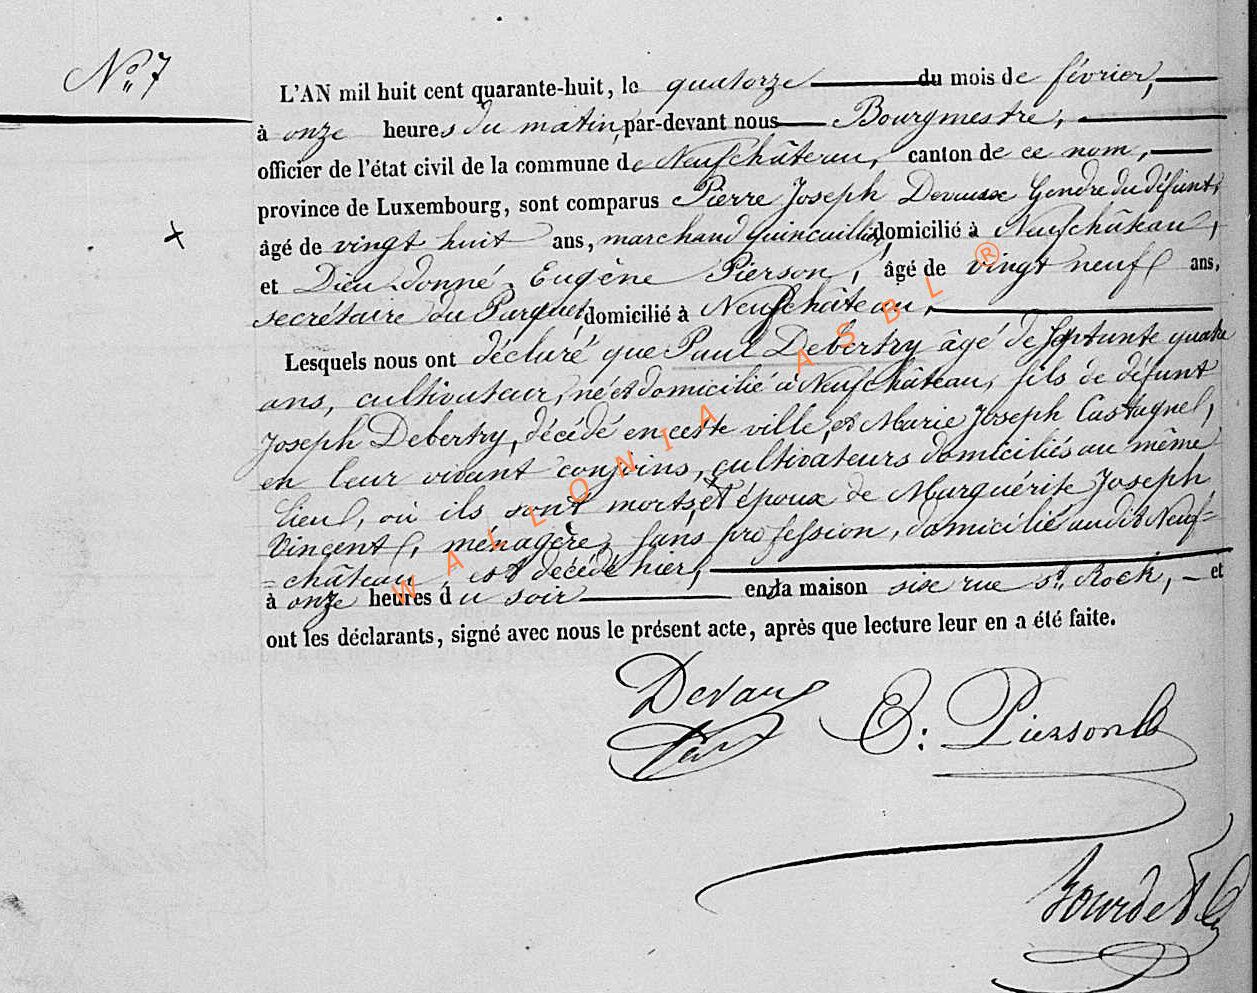 N° 7
L'AN mil huit cent quarante-huit, le quatorze du mois de février,
à onze heures du matin, par-devant nous Bourgmestre,
officier de l'état civil de la commune de Neufchâteau, canton de ce nom,
province de Luxembourg, sont comparus Pierre Joseph Devaux Gendre du défunt,
âgé de vingt huit ans, marchand quincaillier, domicilié à Neufchâteau,
et Dieudonné Eugène Pierson, âgé de vingt neuf ans,
secrétaire du Parquet, domicilié à Neufchâteau,
Lesquels nous ont déclaré que Paul Debertry âgé de septante quatre
ans, cultivateur, né et domicilié à Neufchâteau, fils de défunt
Joseph Debertry, décédé en cette ville, et Marie Joseph Castagnel,
en leur vivant conjoins, cultivateurs domiciliés au même
lieu, où ils sont morts, et époux de Marguérite Joseph
Vincent, ménagère, sans profession, domicilié audit Neuf=
=château, est décédé hier,
à onze heures du soir en la maison sise rue St. Rock, et
ont les déclarants, signé avec nous le présent acte, après que lecture leur en a été faite.
Devaux
E: Pierson
Bourdet
WALLONIA ASBL ®